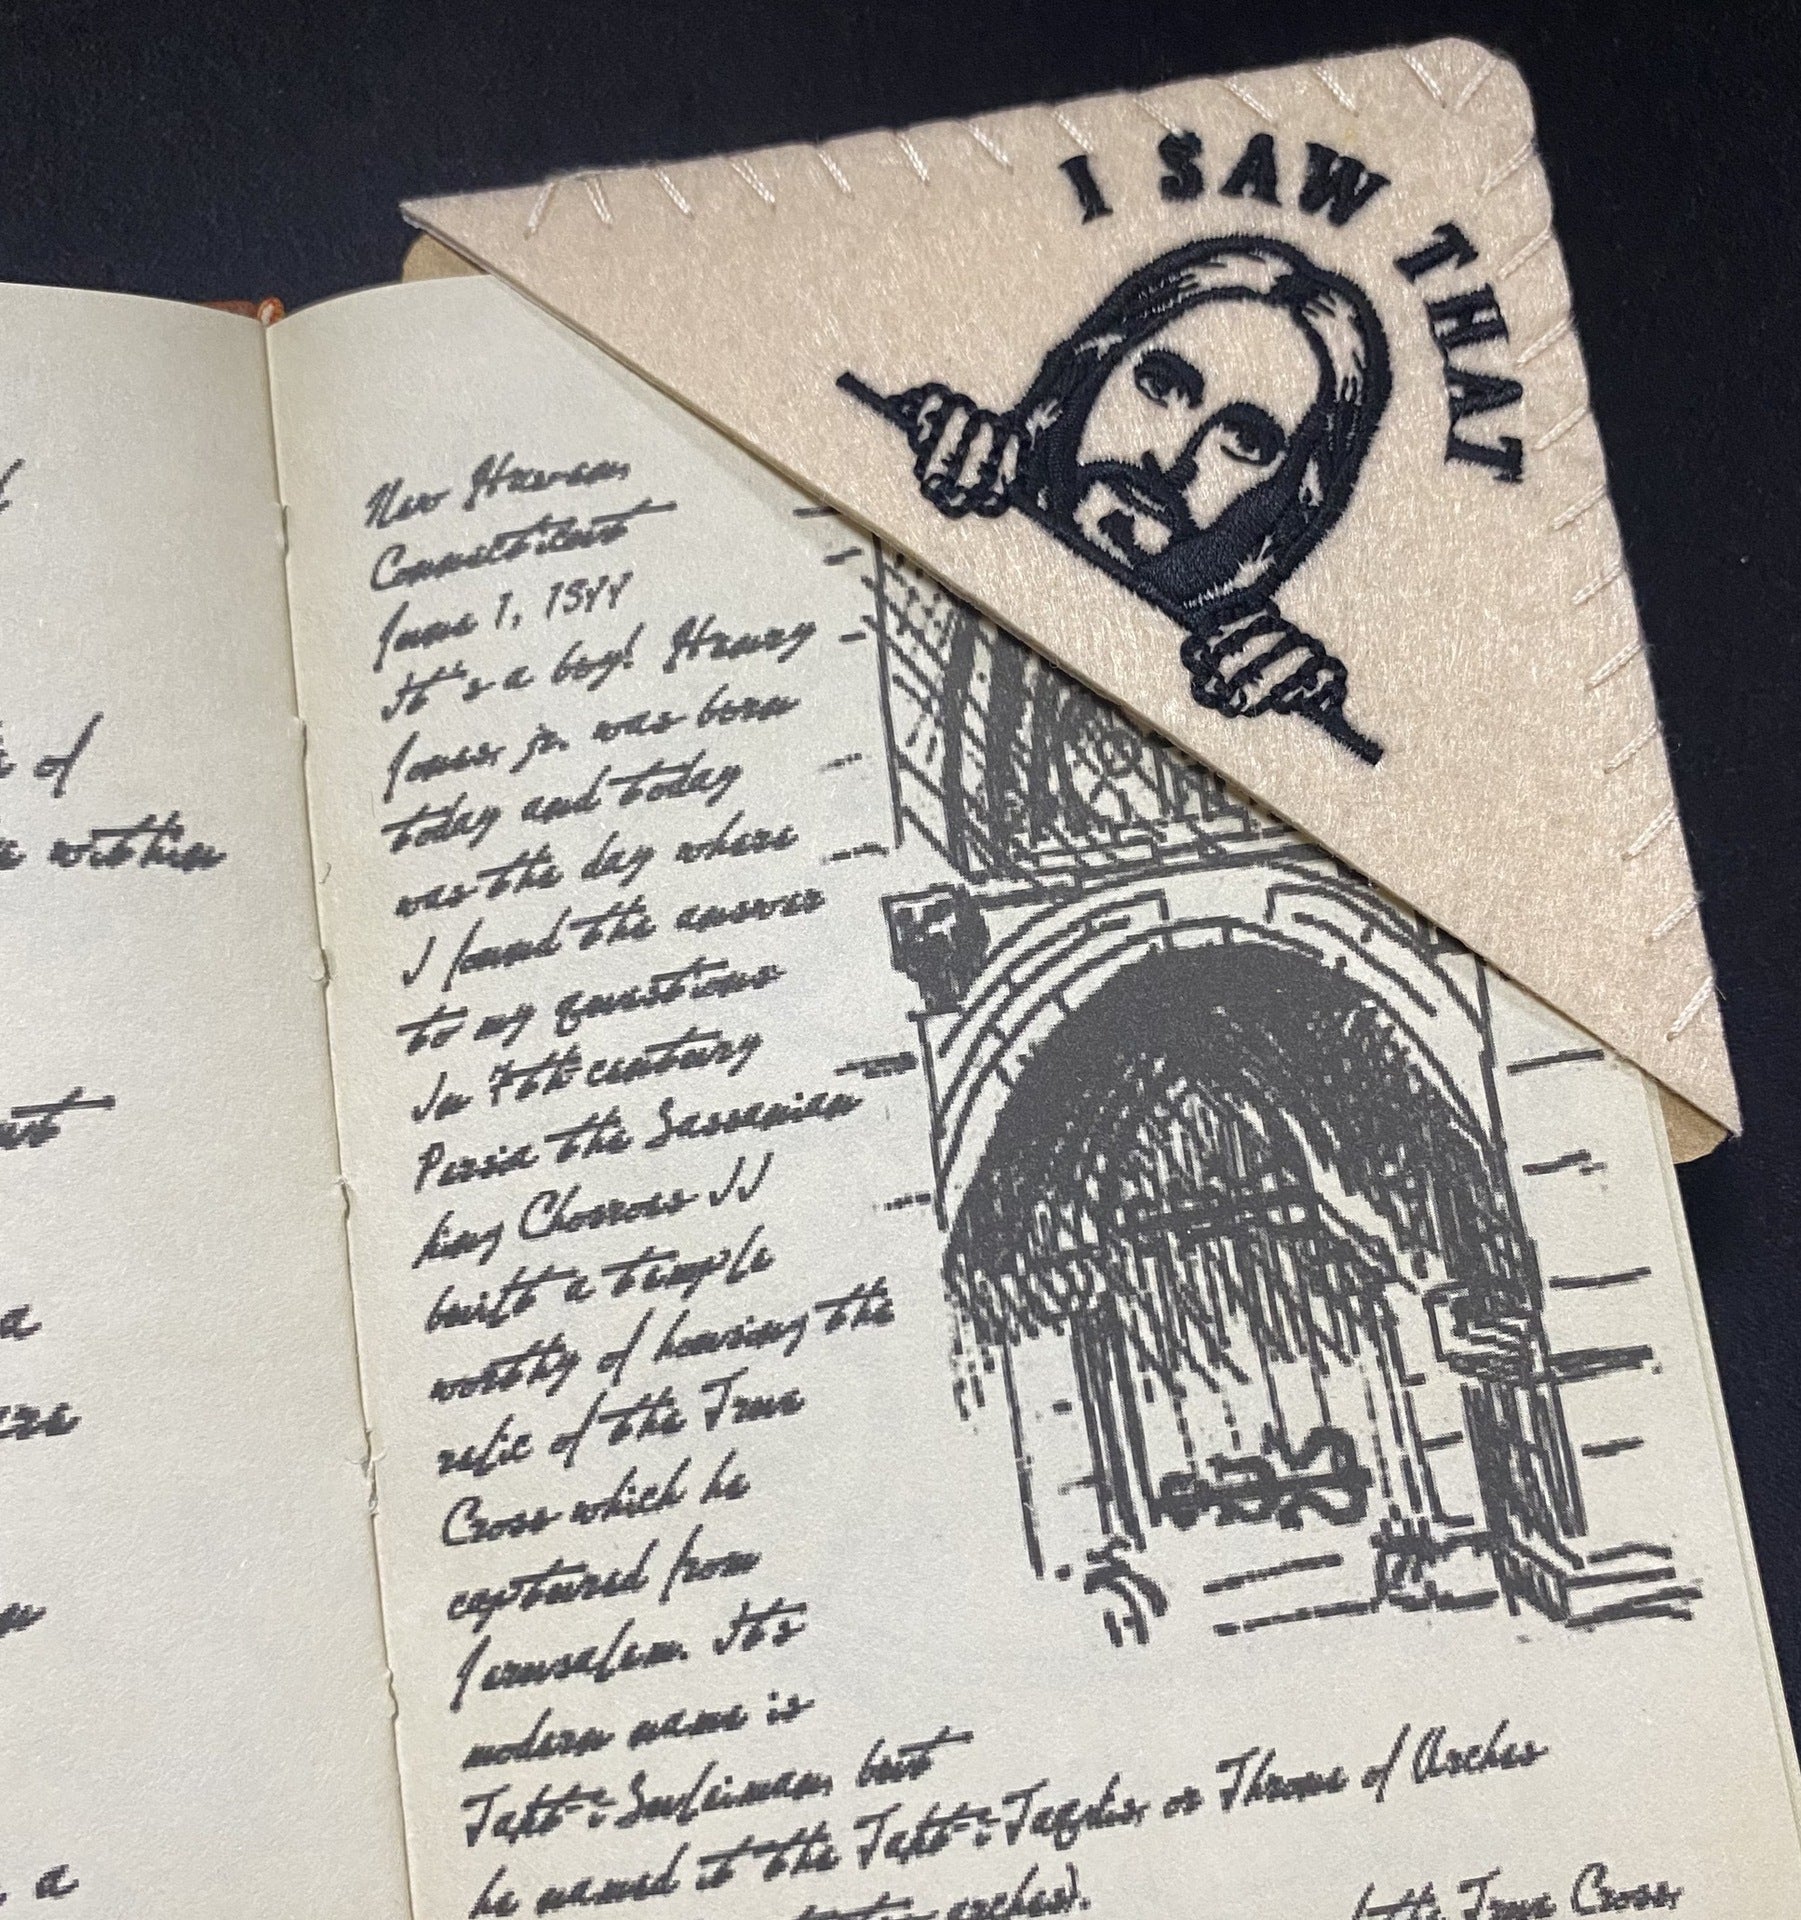 I SAW THAT
of
within
a
ere
a
New Haven,
Connecticut
June 1, 1899
It's a boy! Henry
Jones, jr. was born
today and today
was the day where
I found the answer
to my questions
In 7th century
Persia the Sassanian
king Chosroes II
built a temple
worthy of housing the
relic of the True
Cross which he
captured from
Jerusalem. Its
modern name is
Takht-i-Suleiman, but
he named it the Takht-i-Taqdis, or Throne of Arches
arches). the True Cross,